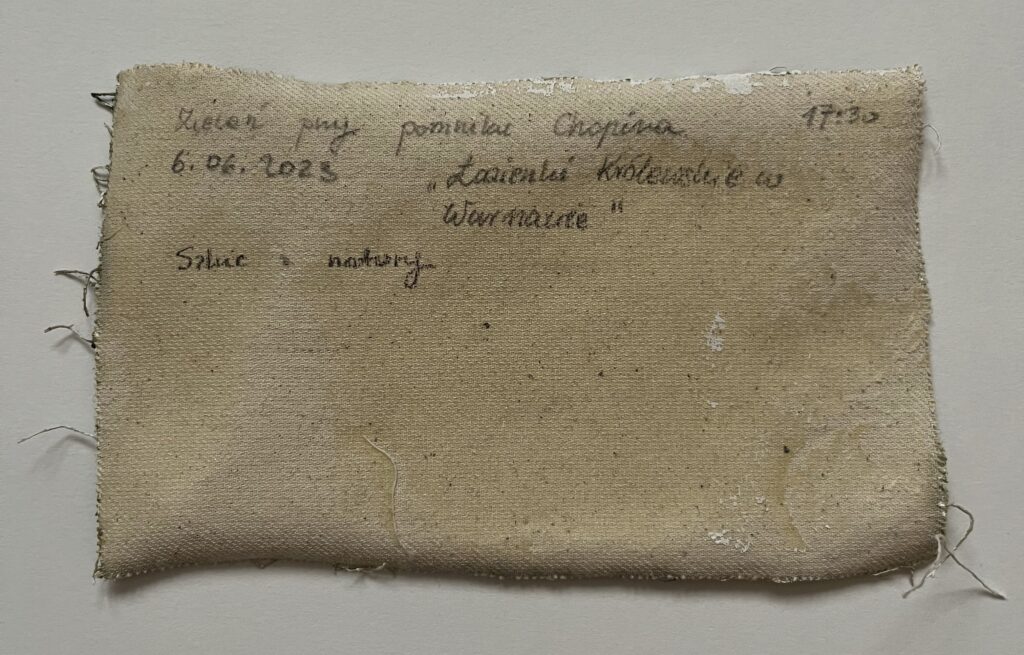 Zieleń przy pomniku Chopina 17:30
6.06.2023 „Łazienki Królewskie w
Warszawie"
Szkic z natury